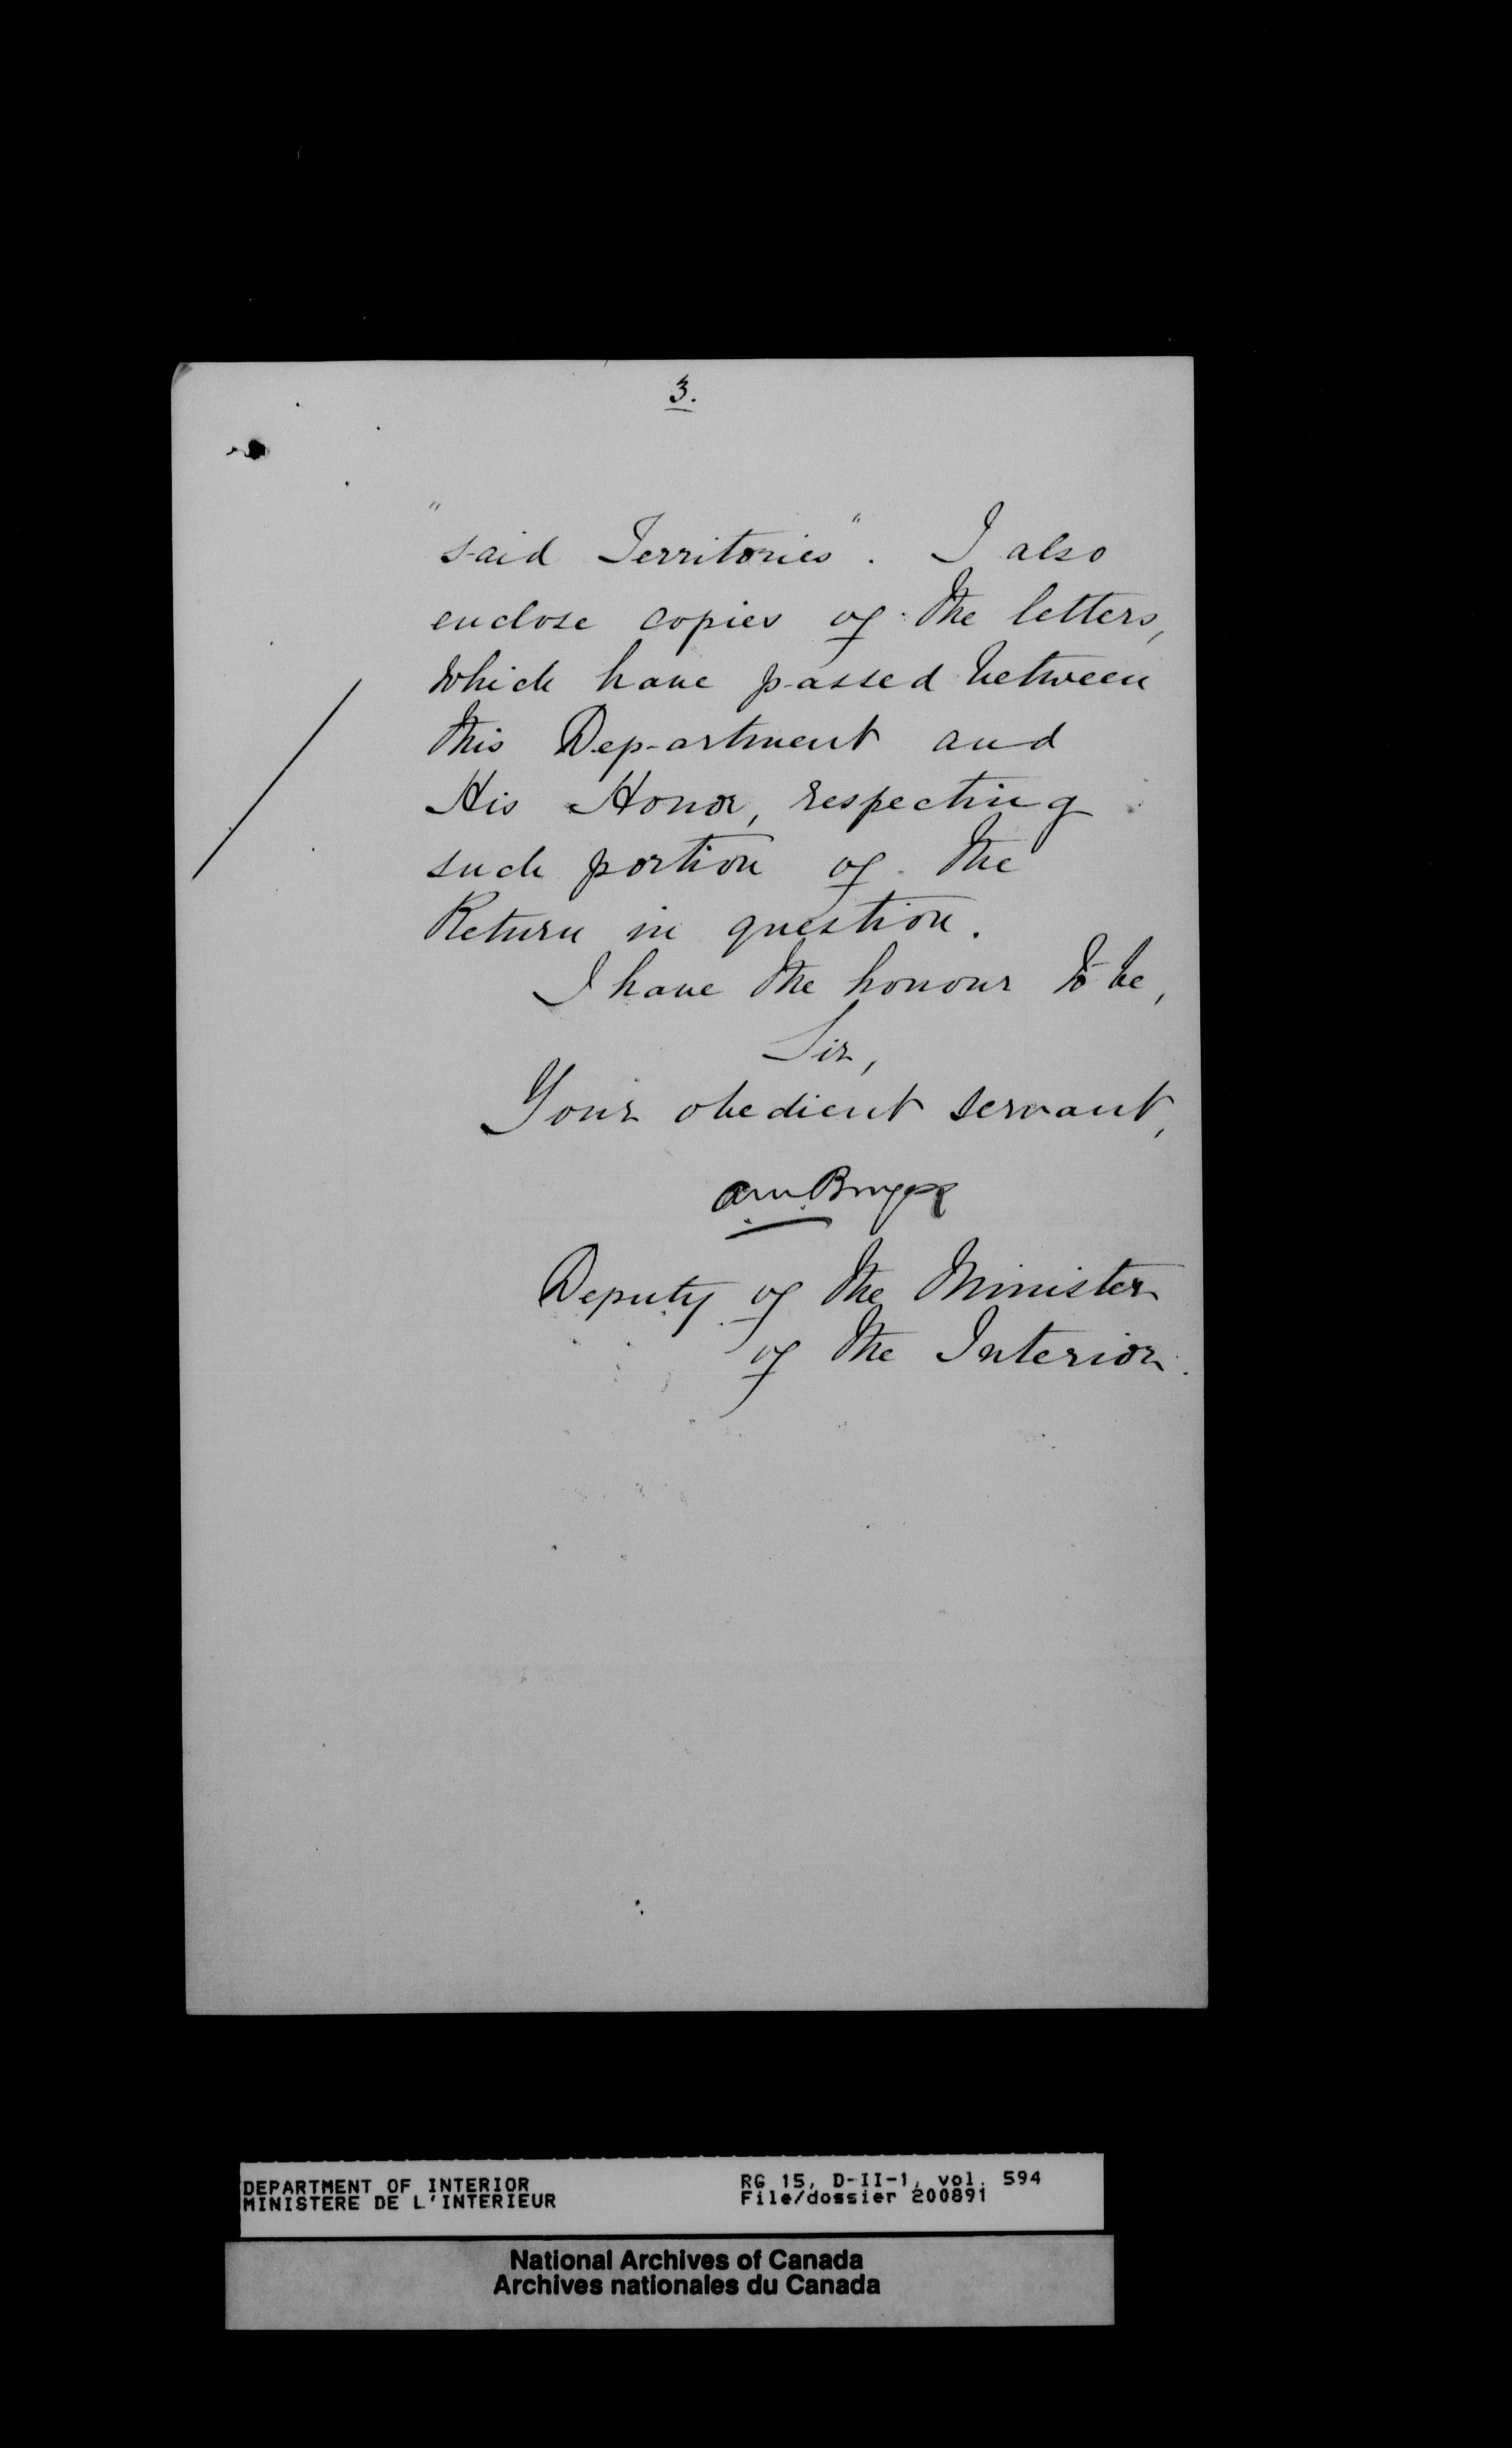 3.
"said Territories". I also
enclose copies of the letters,
which have passed between
this Department and
His Honor, respecting
such portion of the
Return in question.
I have the honour to be,
Sir,
Your obedient servant,
Deputy of the Minister
of the Interior.
DEPARTMENT OF INTERIOR
MINISTERE DE L'INTERIEUR
RG 15, D-II-1, vol. 594
File/dossier 200891
National Archives of Canada
Archives nationales du Canada